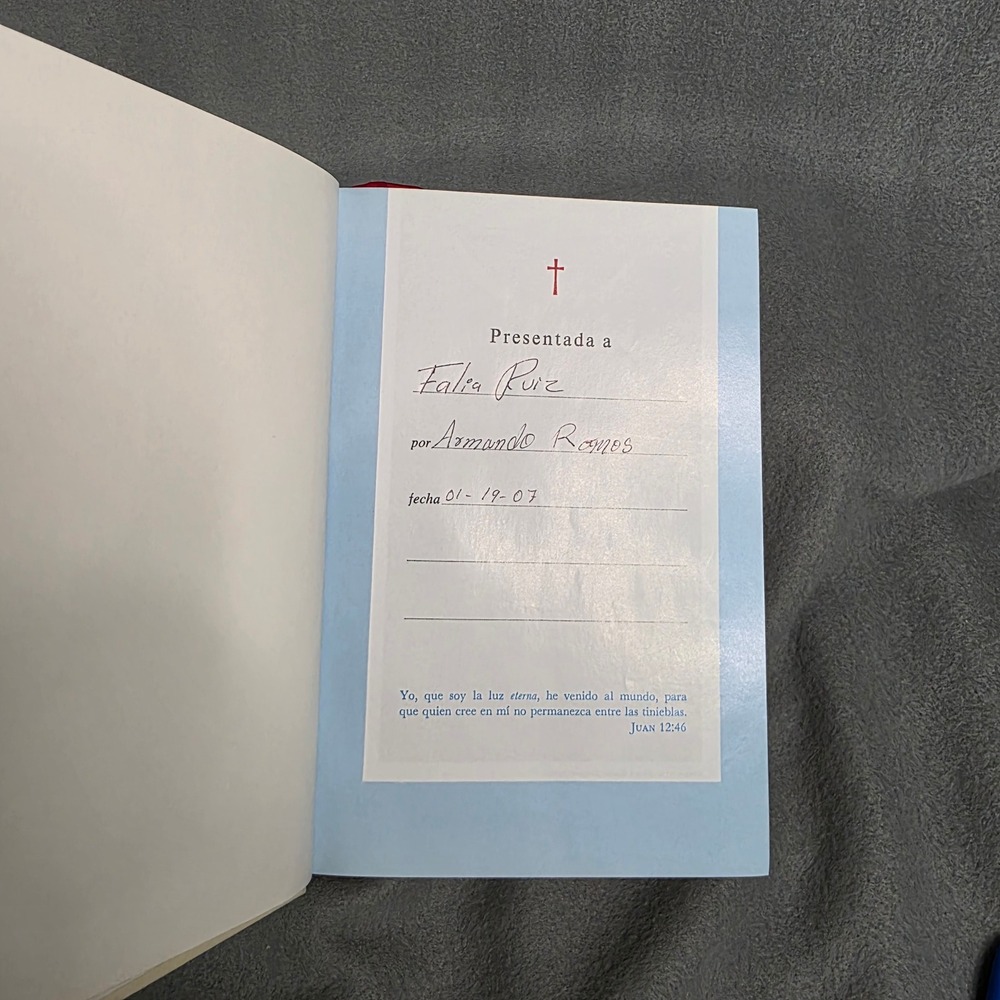 Presentada a
Falia Ruiz
por Armando Ramos
fecha 01-19-07
Yo, que soy la luz eterna, he venido al mundo, para
que quien cree en mí no permanezca entre las tinieblas.
Juan 12:46